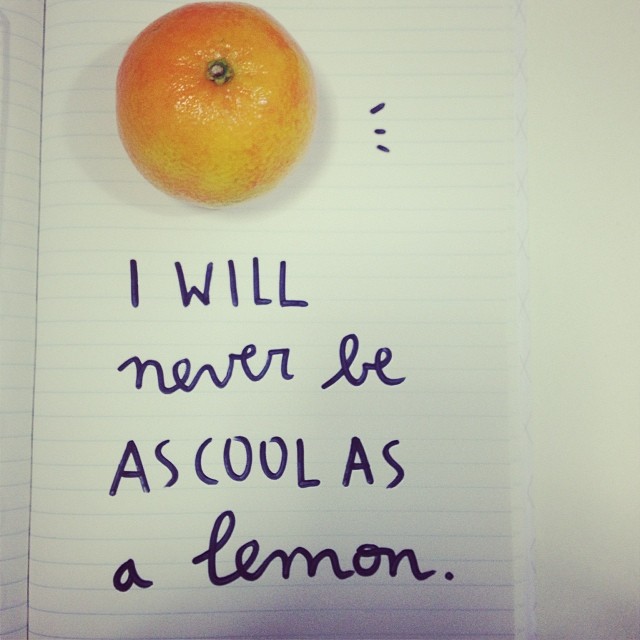 I WILL
never be
AS COOL AS
a lemon.